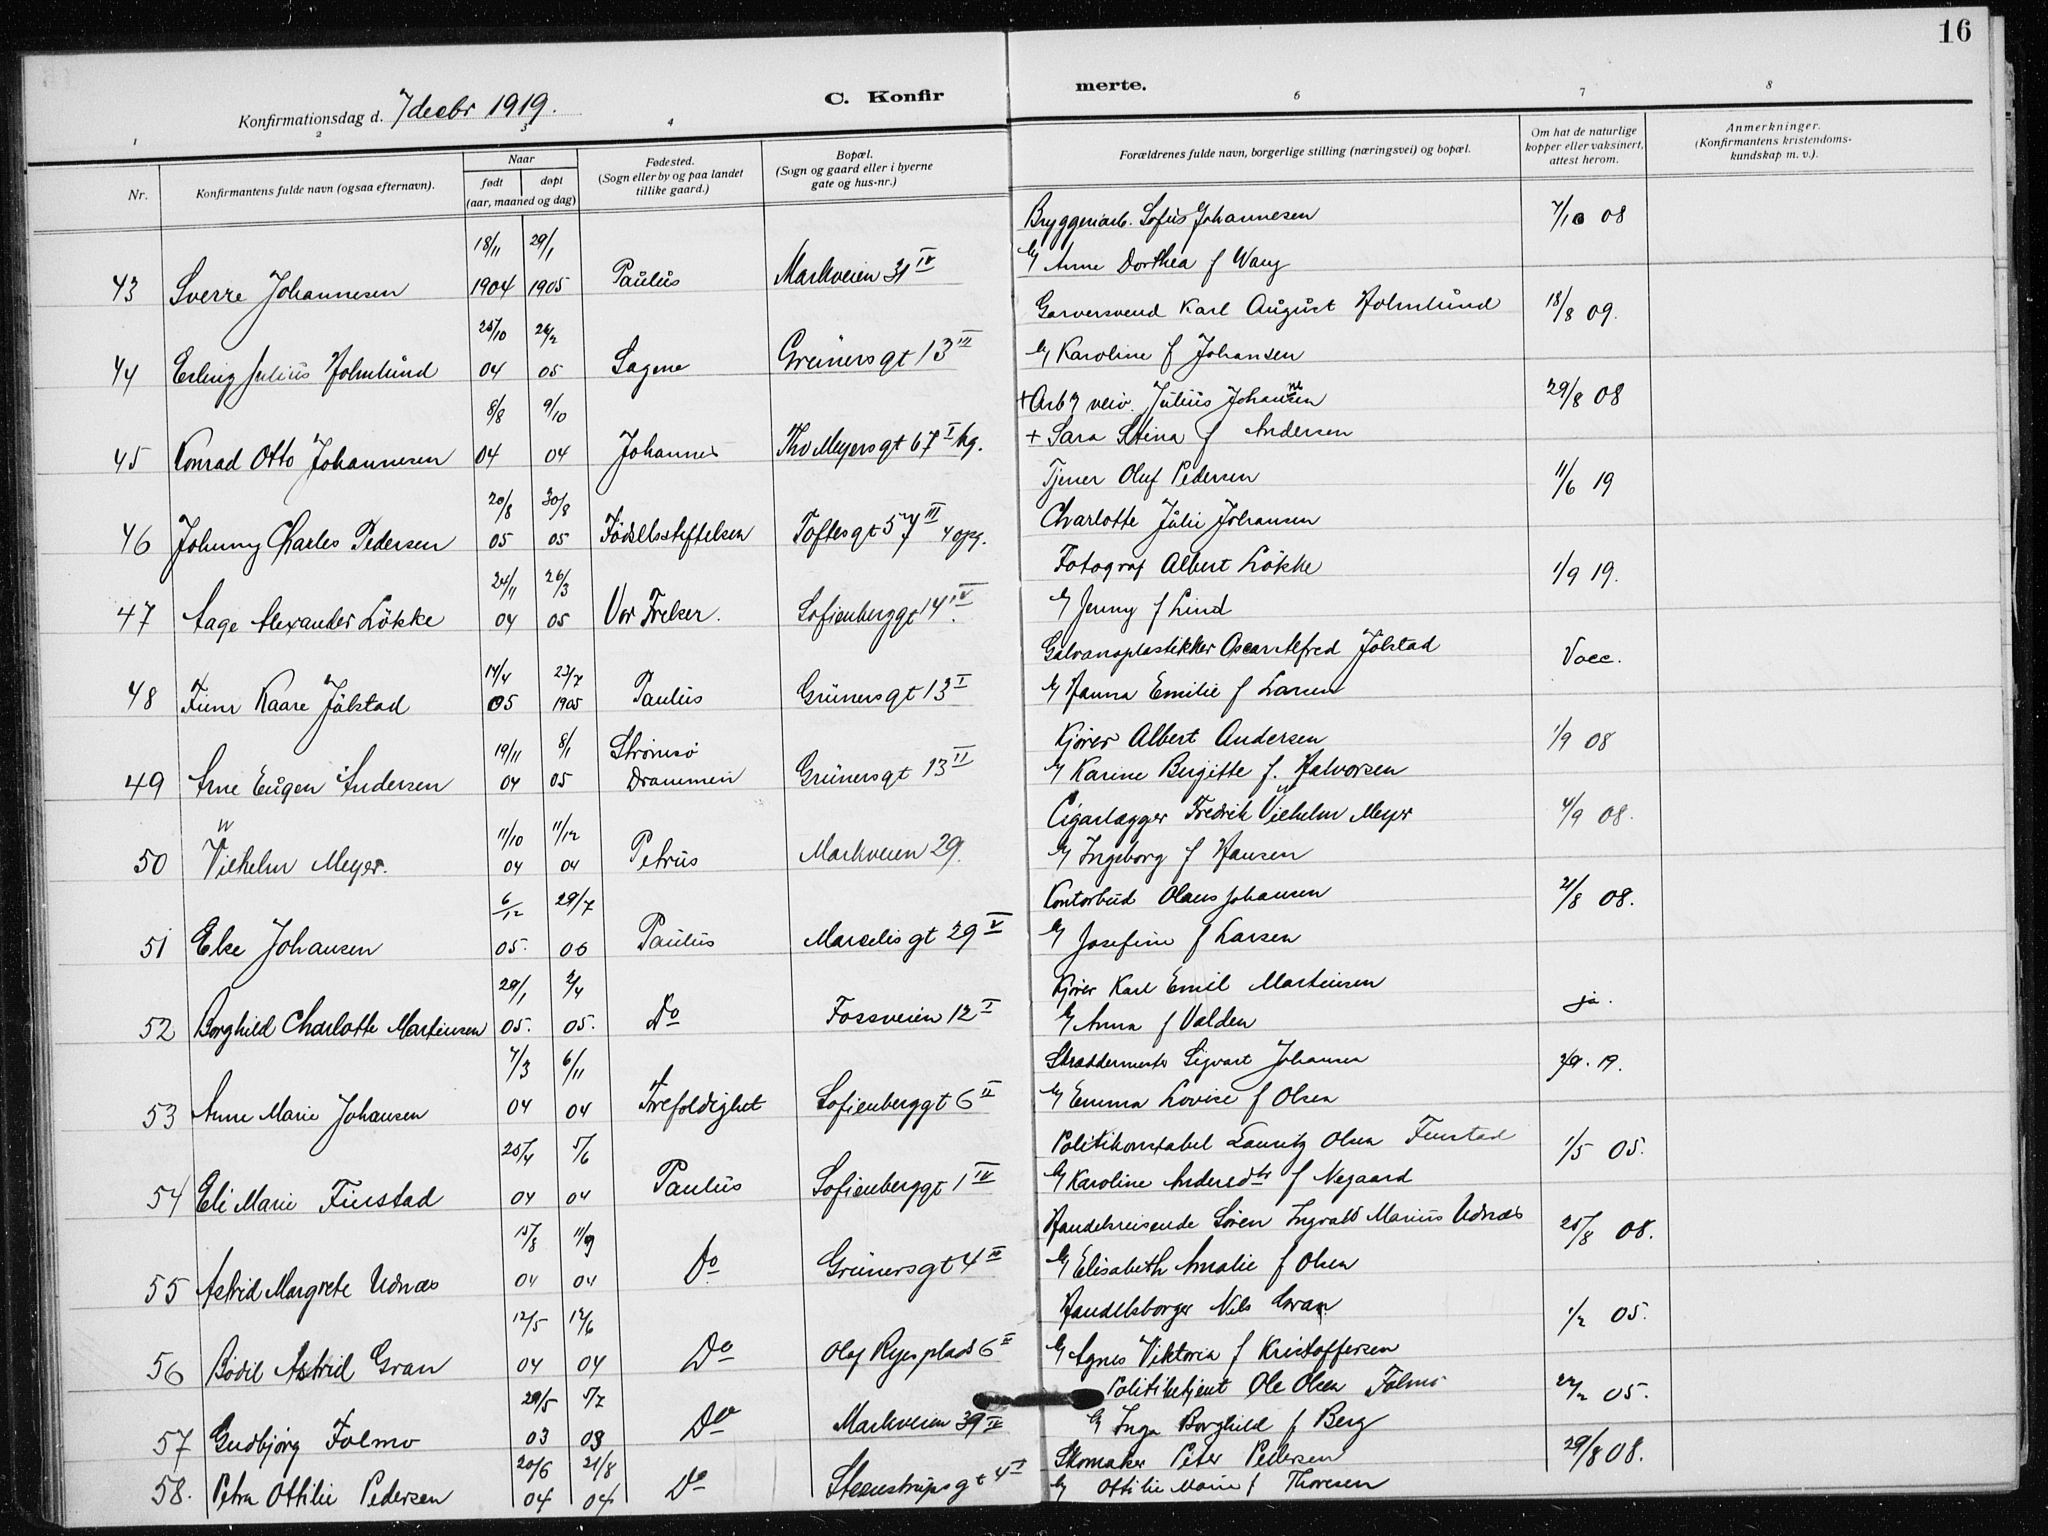 16
Konfirmationsdag d. 7 decbr 1919.
C. Konfir merte.
1 2 3 4 6 7 8
Nr. Konfirmantens fulde navn (ogsaa efternavn). Naar født døpt (aar, maaned og dag) Fødested. (Sogn eller by og paa landet tillike gaard.) Bopæl. (Sogn og gaard eller i byerne gate og hus-nr.) Forældrenes fulde navn, borgerlige stilling (næringsvei) og bopæl. Om hat de naturlige kopper eller vaksinert, attest herom. Anmerkninger. (Konfirmantens kristendoms-kundskap m. v.).
18/11 29/1 Bryggeriarb. Sofus Johannesen 7/10 08
43 Sverre Johannesen 1904 1905 Paulus Markveien 31 IV Anne Dorthea f Wang
25/10 26/2 Garversvend Karl August Holmlund 18/8 09.
44 Erling Julius Holmlund 04 05 Sagene Grünersgt 13 III Karoline f Johansen
8/8 9/10 + Arb Julius Johansen 29/8 08
45 Konrad Otto Johannesen 04 04 Johannes Thv Meyersgt 67 I hg. + Sara Stina f Andersen
20/8 30/8 Tjener Oluf Pedersen 11/6 19
46 Johnny Charles Pedersen 05 05 Fødselsstiftelsen Toftesgt 57 III 4 opg. Charlotte Julie Johansen
24/11 26/3 Fotograf Albert Løkke 1/9 19.
47 Aage Alexander Løkke 04 05 Vor Frelser. Sofienberggt 14 IV. Jenny f Lind
14/4 23/7 Galvanoplastikker Oscar Alfred Jølstad Vacc.
48 Finn Kaare Jølstad 05 1905 Paulus Grünersgt 13 I Hanna Emilie f Larsen
19/11 8/1 Strømsø Kjører Albert Andersen 1/9 08
49 Arne Eugen Andersen 04 05 Drammen Grünersgt 13 II Karine Birgitte f. Halvorsen
W 11/10 11/12 Cigarlægger Fredrik Vilhelm Meyer 4/9 08.
50 Vilhelm Meyer. 04 04 Petrus Markveien 29. Ingeborg f Hansen
6/12 29/7 Kontorbud Olaus Johansen 21/8 08.
51 Else Johansen 05. 06 Paulus Marselisgt 29 V Josefine f Larsen
29/1 2/4 Kjører Karl Emil Martinsen ja.
52 Borghild Charlotte Martinsen 05. 05. Do Fossveien 12 I Anna f Valden
7/3 6/11 Skræddermester Sigvart Johansen 19.
53 Anne Marie Johansen 04 04 Trefoldighet Sofienberggt 6 II Emma Lovise f Olsen
25/4 5/6 Politikonstabel Lauritz Olsen Finstad 1/5 05.
54 Eli Marie Finstad 04 04 Paulus Sofienberggt 1 IV Karoline Andersdtr f Negaard
15/8 11/9 Handelsreisende Søren Ingvald Marius Udnæs 25/8 08.
55 Astrid Margrete Udnæs 04 04 Do Grünersgt 4 III Elisabeth Amalie f Olsen
12/5 12/6 Handelsborger Nils Gran 1/2 05.
56 Bodil Astrid Gran 04 04 Do Olaf Ryes plads 6 II Agnes Viktoria f Kristoffersen
29/5 5/7 Politibetjent Ole Olsen Folmo 22/2 05.
57 Gudbjørg Folmo 03 03 Do Markveien 39 IV Inga Borghild f Berg
20/6 21/8 Skomaker Peter Pedersen 29/8 08.
58. Petra Ottilie Pedersen 04 04 Do Steenstrupsgt 4 I Ottilie Marie f Thoresen